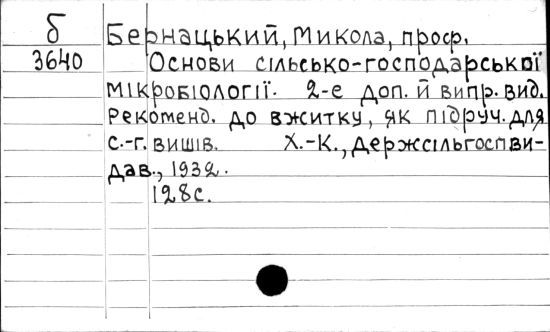 Б
3640
Бернацький, Микола, проф.
Основи сільсько-господарської
мікробіології. 2-е доп. й випр. вид.
Рекоменд. до вжитку, як підруч. для
с.-г. вишів. Х.-К., Держсільгоспви-
дав., 1932.
128с.